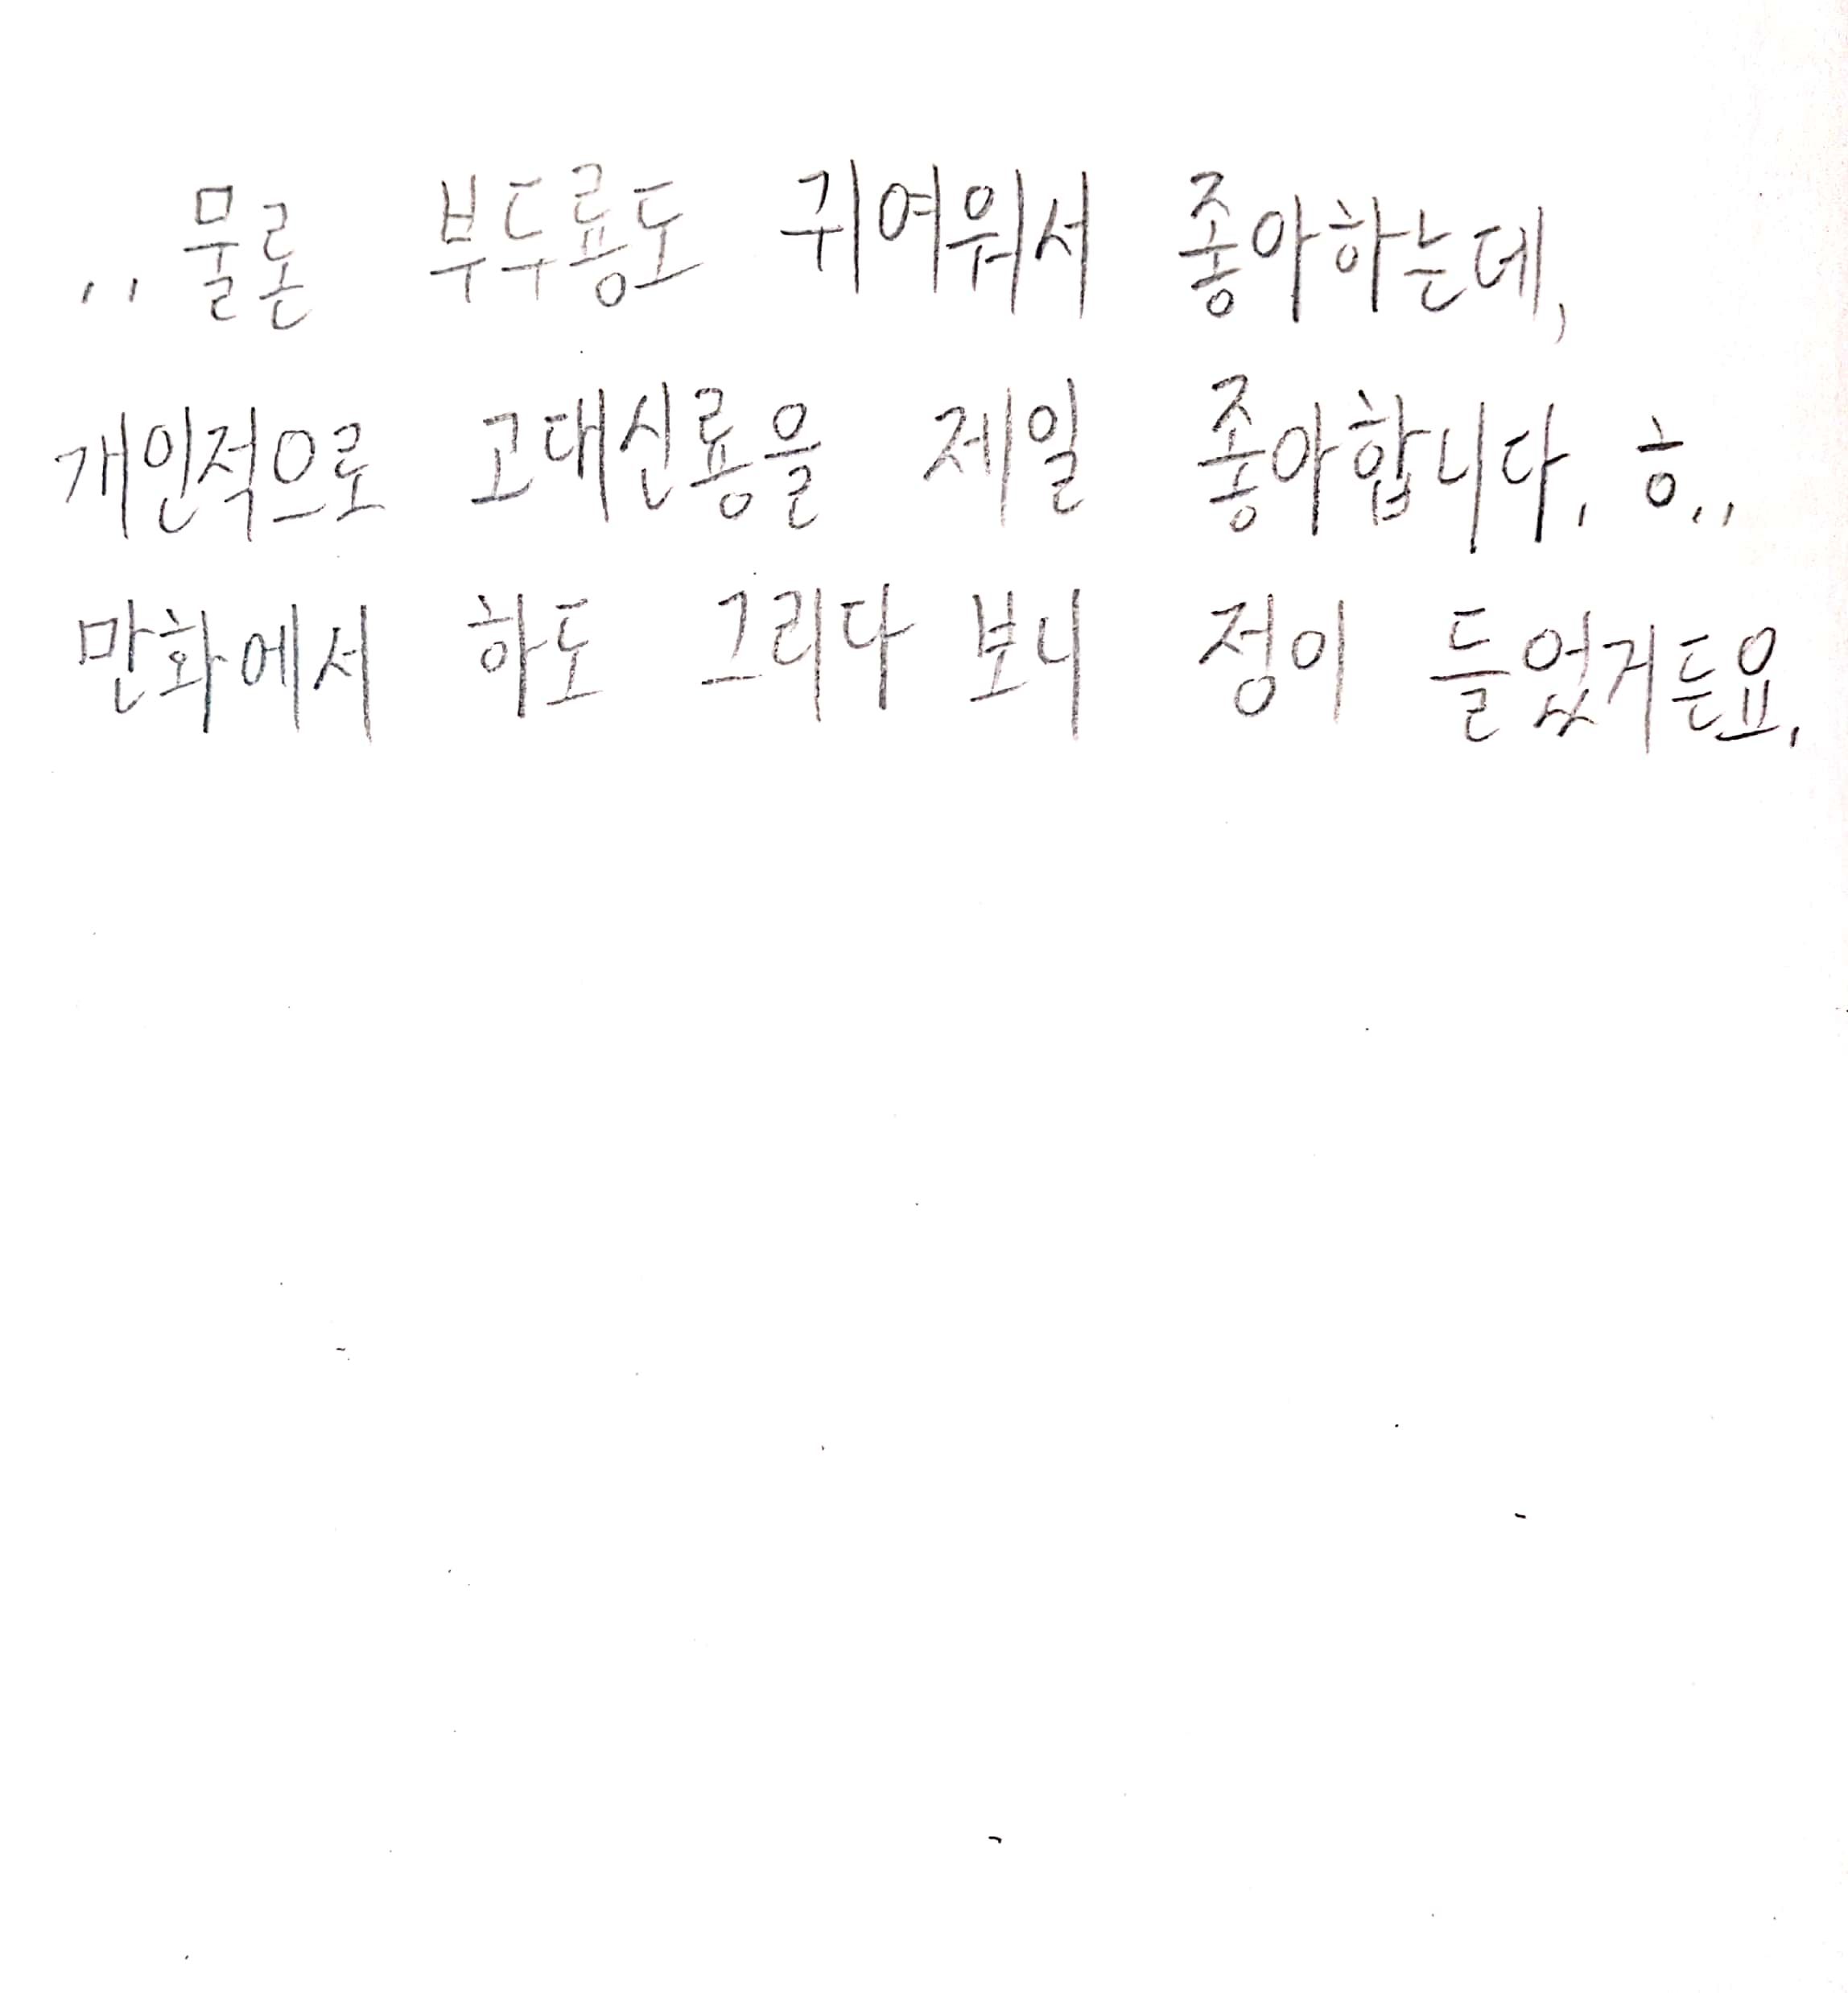 ..물론 부두룡도 귀여워서 좋아하는데,
개인적으로 고대신룡을 제일 좋아합니다. ㅎ..
만화에서 하도 그리다 보니 정이 들었거든요.